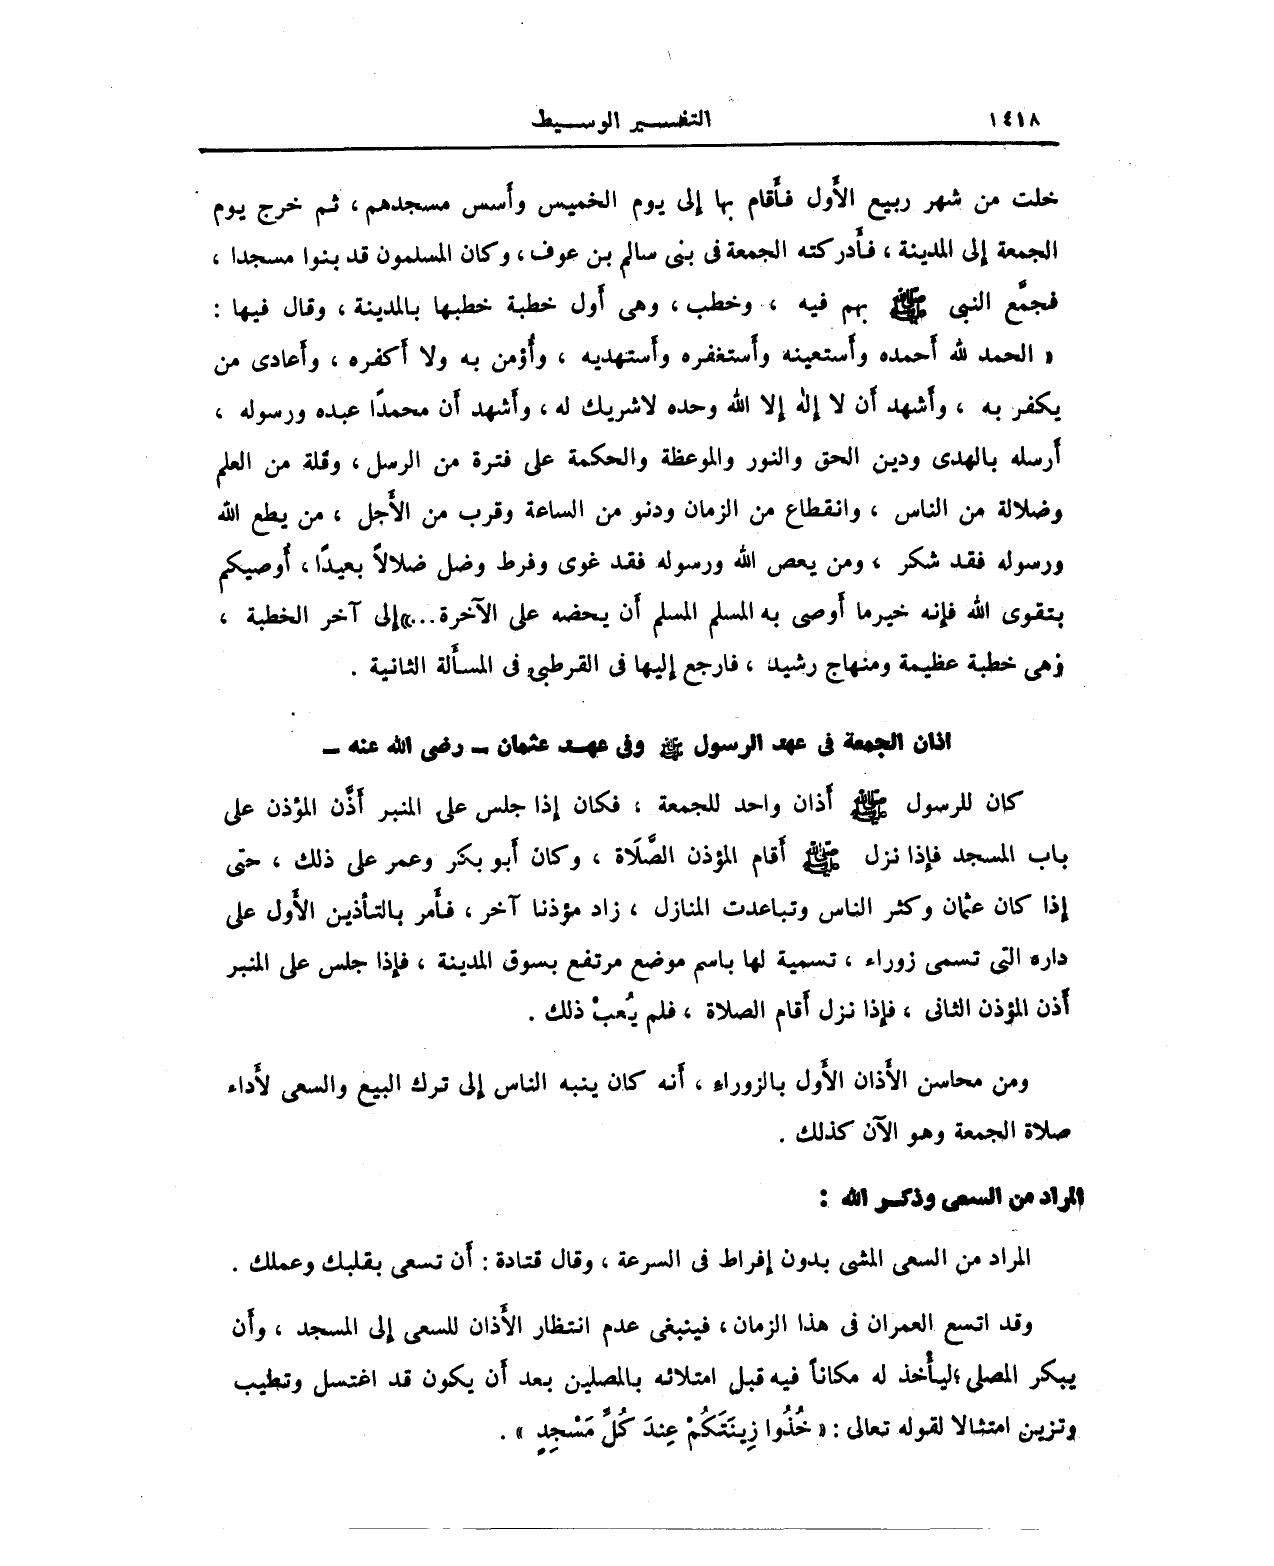 ١٤١٨ التفسير الوسيط
خلت من شهر ربيع الأَول فأَقام بها إلى يوم الخميس وأَسس مسجدهم ، ثم خرج يوم
الجمعة إلى المدينة ، فأَدركته الجمعة فى بنى سالم بن عوف ، وكان المسلمون قد بنوا مسجدا ،
فجمَّع النبى ﷺ بهم فيه ، وخطب ، وهى أَول خطبة خطبها بالمدينة ، وقال فيها :
« الحمد لله أَحمده وأَستعينه وأَستغفره وأَستهديه ، وأُؤمن به ولا أَكفره ، وأَعادى من
يكفر به ، وأَشهد أَن لا إِلٰه إلا الله وحده لاشريك له ، وأَشهد أَن محمدًا عبده ورسوله ،
أَرسله بالهدى ودين الحق والنور والموعظة والحكمة على فترة من الرسل ، وقلة من العلم
وضلالة من الناس ، وانقطاع من الزمان ودنو من الساعة وقرب من الأَجل ، من يطع الله
ورسوله فقد شكر ، ومن يعص الله ورسوله فقد غوى وفرط وضل ضلالاً بعيدًا ، أُوصيكم
بتقوى الله فإِنه خيرما أَوصى به المسلم المسلم أَن يحضه على الآخرة ...» إلى آخر الخطبة ،
وهى خطبة عظيمة ومنهاج رشيد ، فارجع إليها فى القرطبى فى المسأَلة الثانية .
اذان الجمعة فى عهد الرسول ﷺ وفى عهد عثمان – رضى الله عنه –
كان للرسول ﷺ أَذان واحد للجمعة ، فكان إذا جلس على المنبر أَذَّن المؤذن على
باب المسجد فإذا نزل ﷺ أَقام المؤذن الصَّلَاة ، وكان أَبو بكر وعمر على ذلك ، حتى
إذا كان عثمان وكثر الناس وتباعدت المنازل ، زاد مؤذنا آخر ، فأَمر بالتأذين الأَول على
داره التى تسمى زوراء ، تسمية لها باسم موضع مرتفع بسوق المدينة ، فإذا جلس على المنبر
أَذن المؤذن الثانى ، فإذا نزل أَقام الصلاة ، فلم يُعبْ ذلك .
ومن محاسن الأَذان الأَول بالزوراء ، أَنه كان ينبه الناس إلى ترك البيع والسعى لأَداء
صلاة الجمعة وهو الآن كذلك .
المراد من السعى وذكر الله :
المراد من السعى المشى بدون إفراط فى السرعة ، وقال قتادة : أَن تسعى بقلبك وعملك .
وقد اتسع العمران فى هذا الزمان ، فينبغى عدم انتظار الأَذان للسعى إلى المسجد ، وأَن
يبكر المصلى ؛ ليأْخذ له مكاناً فيه قبل امتلائه بالمصلين بعد أَن يكون قد اغتسل وتطيب
وتزين امتثالا لقوله تعالى : « خُذُوا زِينَتَكُمْ عِندَ كُلِّ مَسْجِدٍ » .